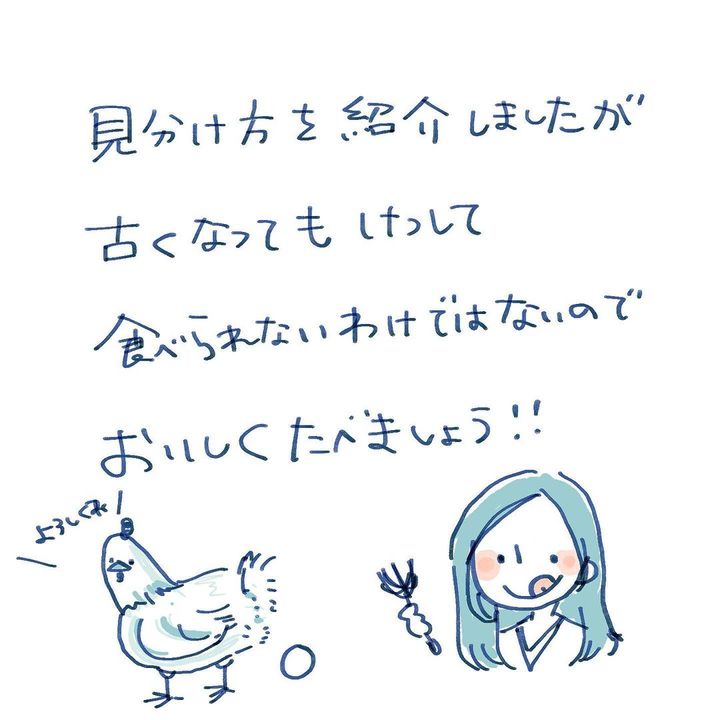 見分け方を紹介しましたが
古くなっても けっして
食べられないわけではないので
おいしくたべましょう!!
よろしくね